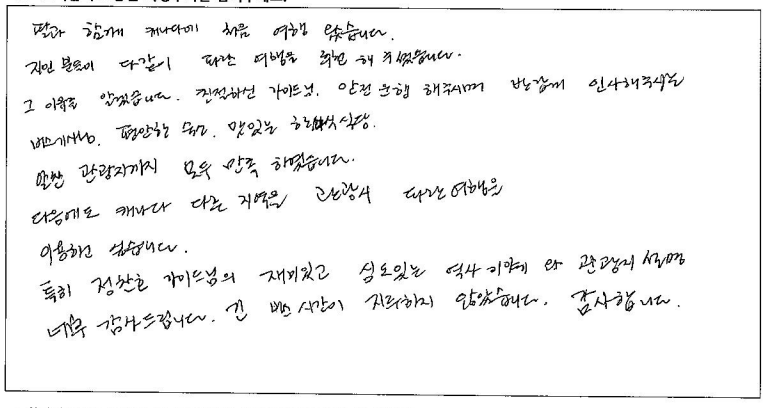 딸과 함께 캐나다에 처음 여행 왔습니다.
지인 분들이 다같이 파란 여행을 추천 해 주셨습니다.
그 이유를 알겠습니다. 친절하신 가이드님, 안전 운행 해주시며 반갑게 인사해주시는
버스기사님, 편안한 숙소, 맛있는 식당.
알찬 관광지까지 모두 만족 하였습니다.
다음에도 캐나다 다른 지역을 관광시 파란여행을
이용하고 싶습니다.
특히 정찬호 가이드님의 재미있고 심도있는 역사 이야기와 관광지 설명
너무 감사드립니다. 긴 버스 시간이 지루하지 않았습니다. 감사합니다.